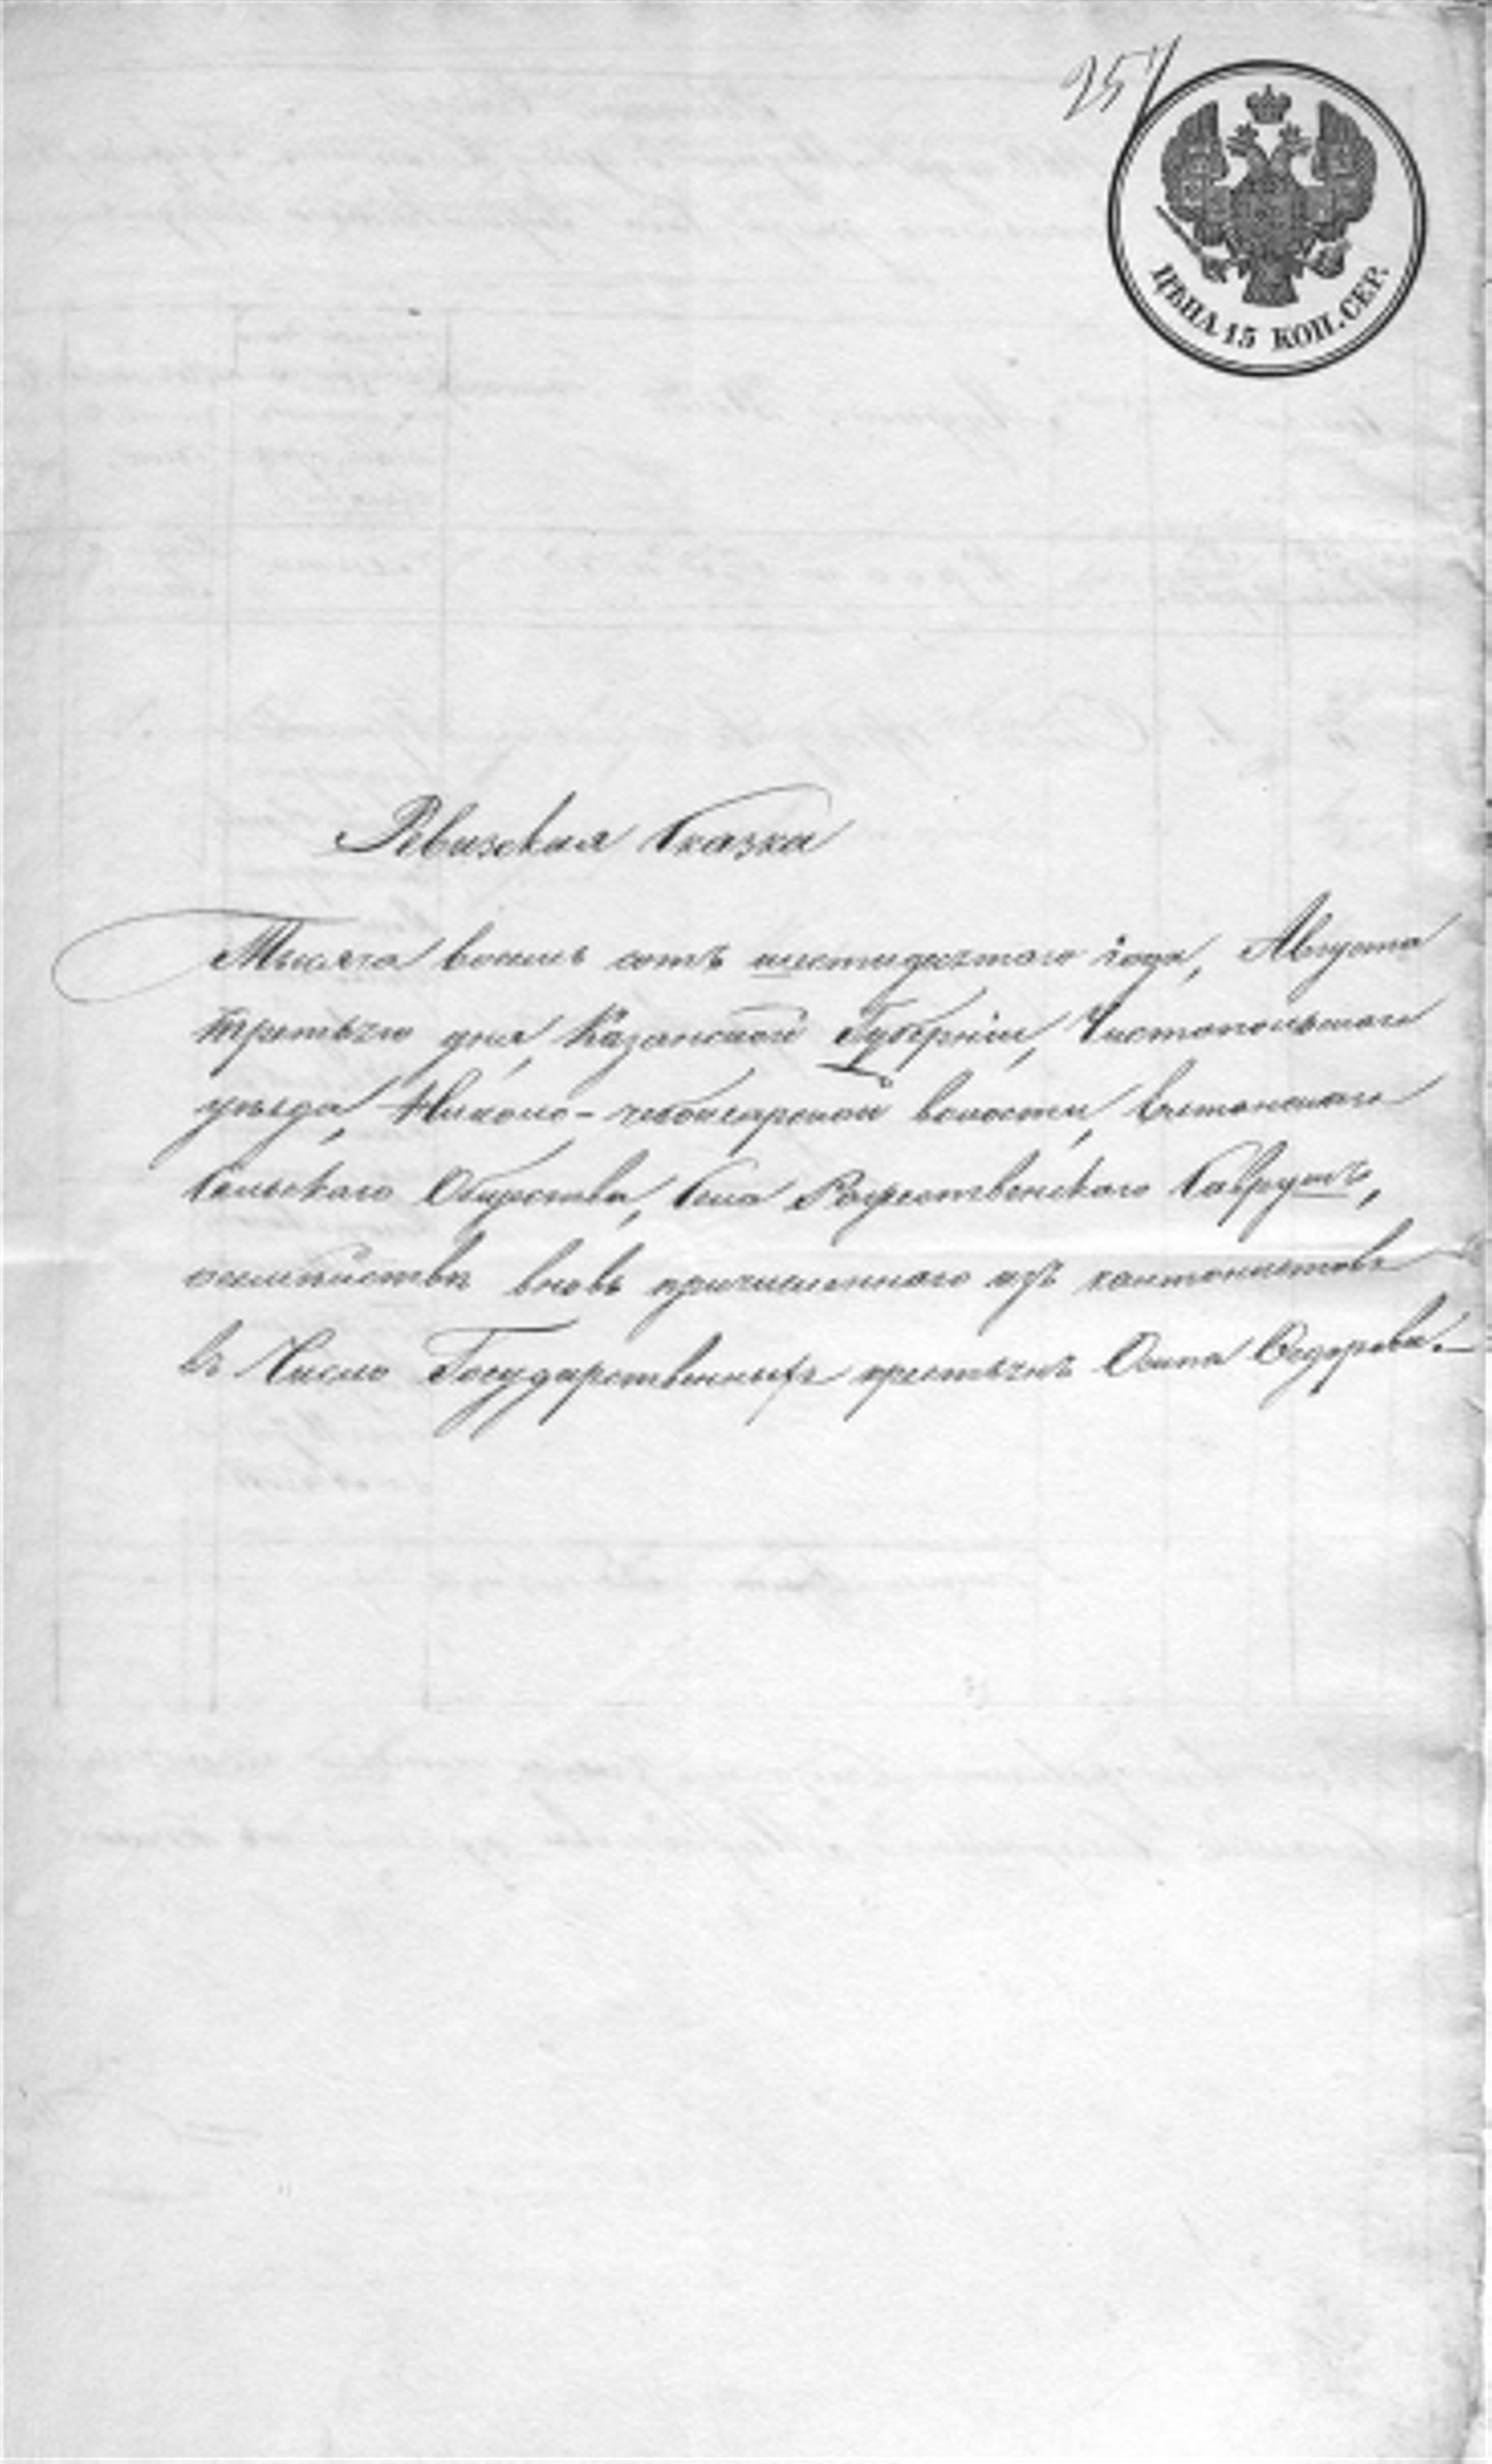 257
ЦѢНА 15 КОП. СЕР.
Ревизская Сказка
Тысяча восемь сотъ шестидесятаго года, Августа
третьяго дня, Казанской Губерніи, Чистопольскаго
уѣзда, Николо-чебоксарской волости,
Сельскаго Общества, Села Рождественскаго
о семѣйствѣ вновь причисленнаго изъ кантонистовъ
въ Число Государственныхъ крестьянъ Осипа Ѳедорова.